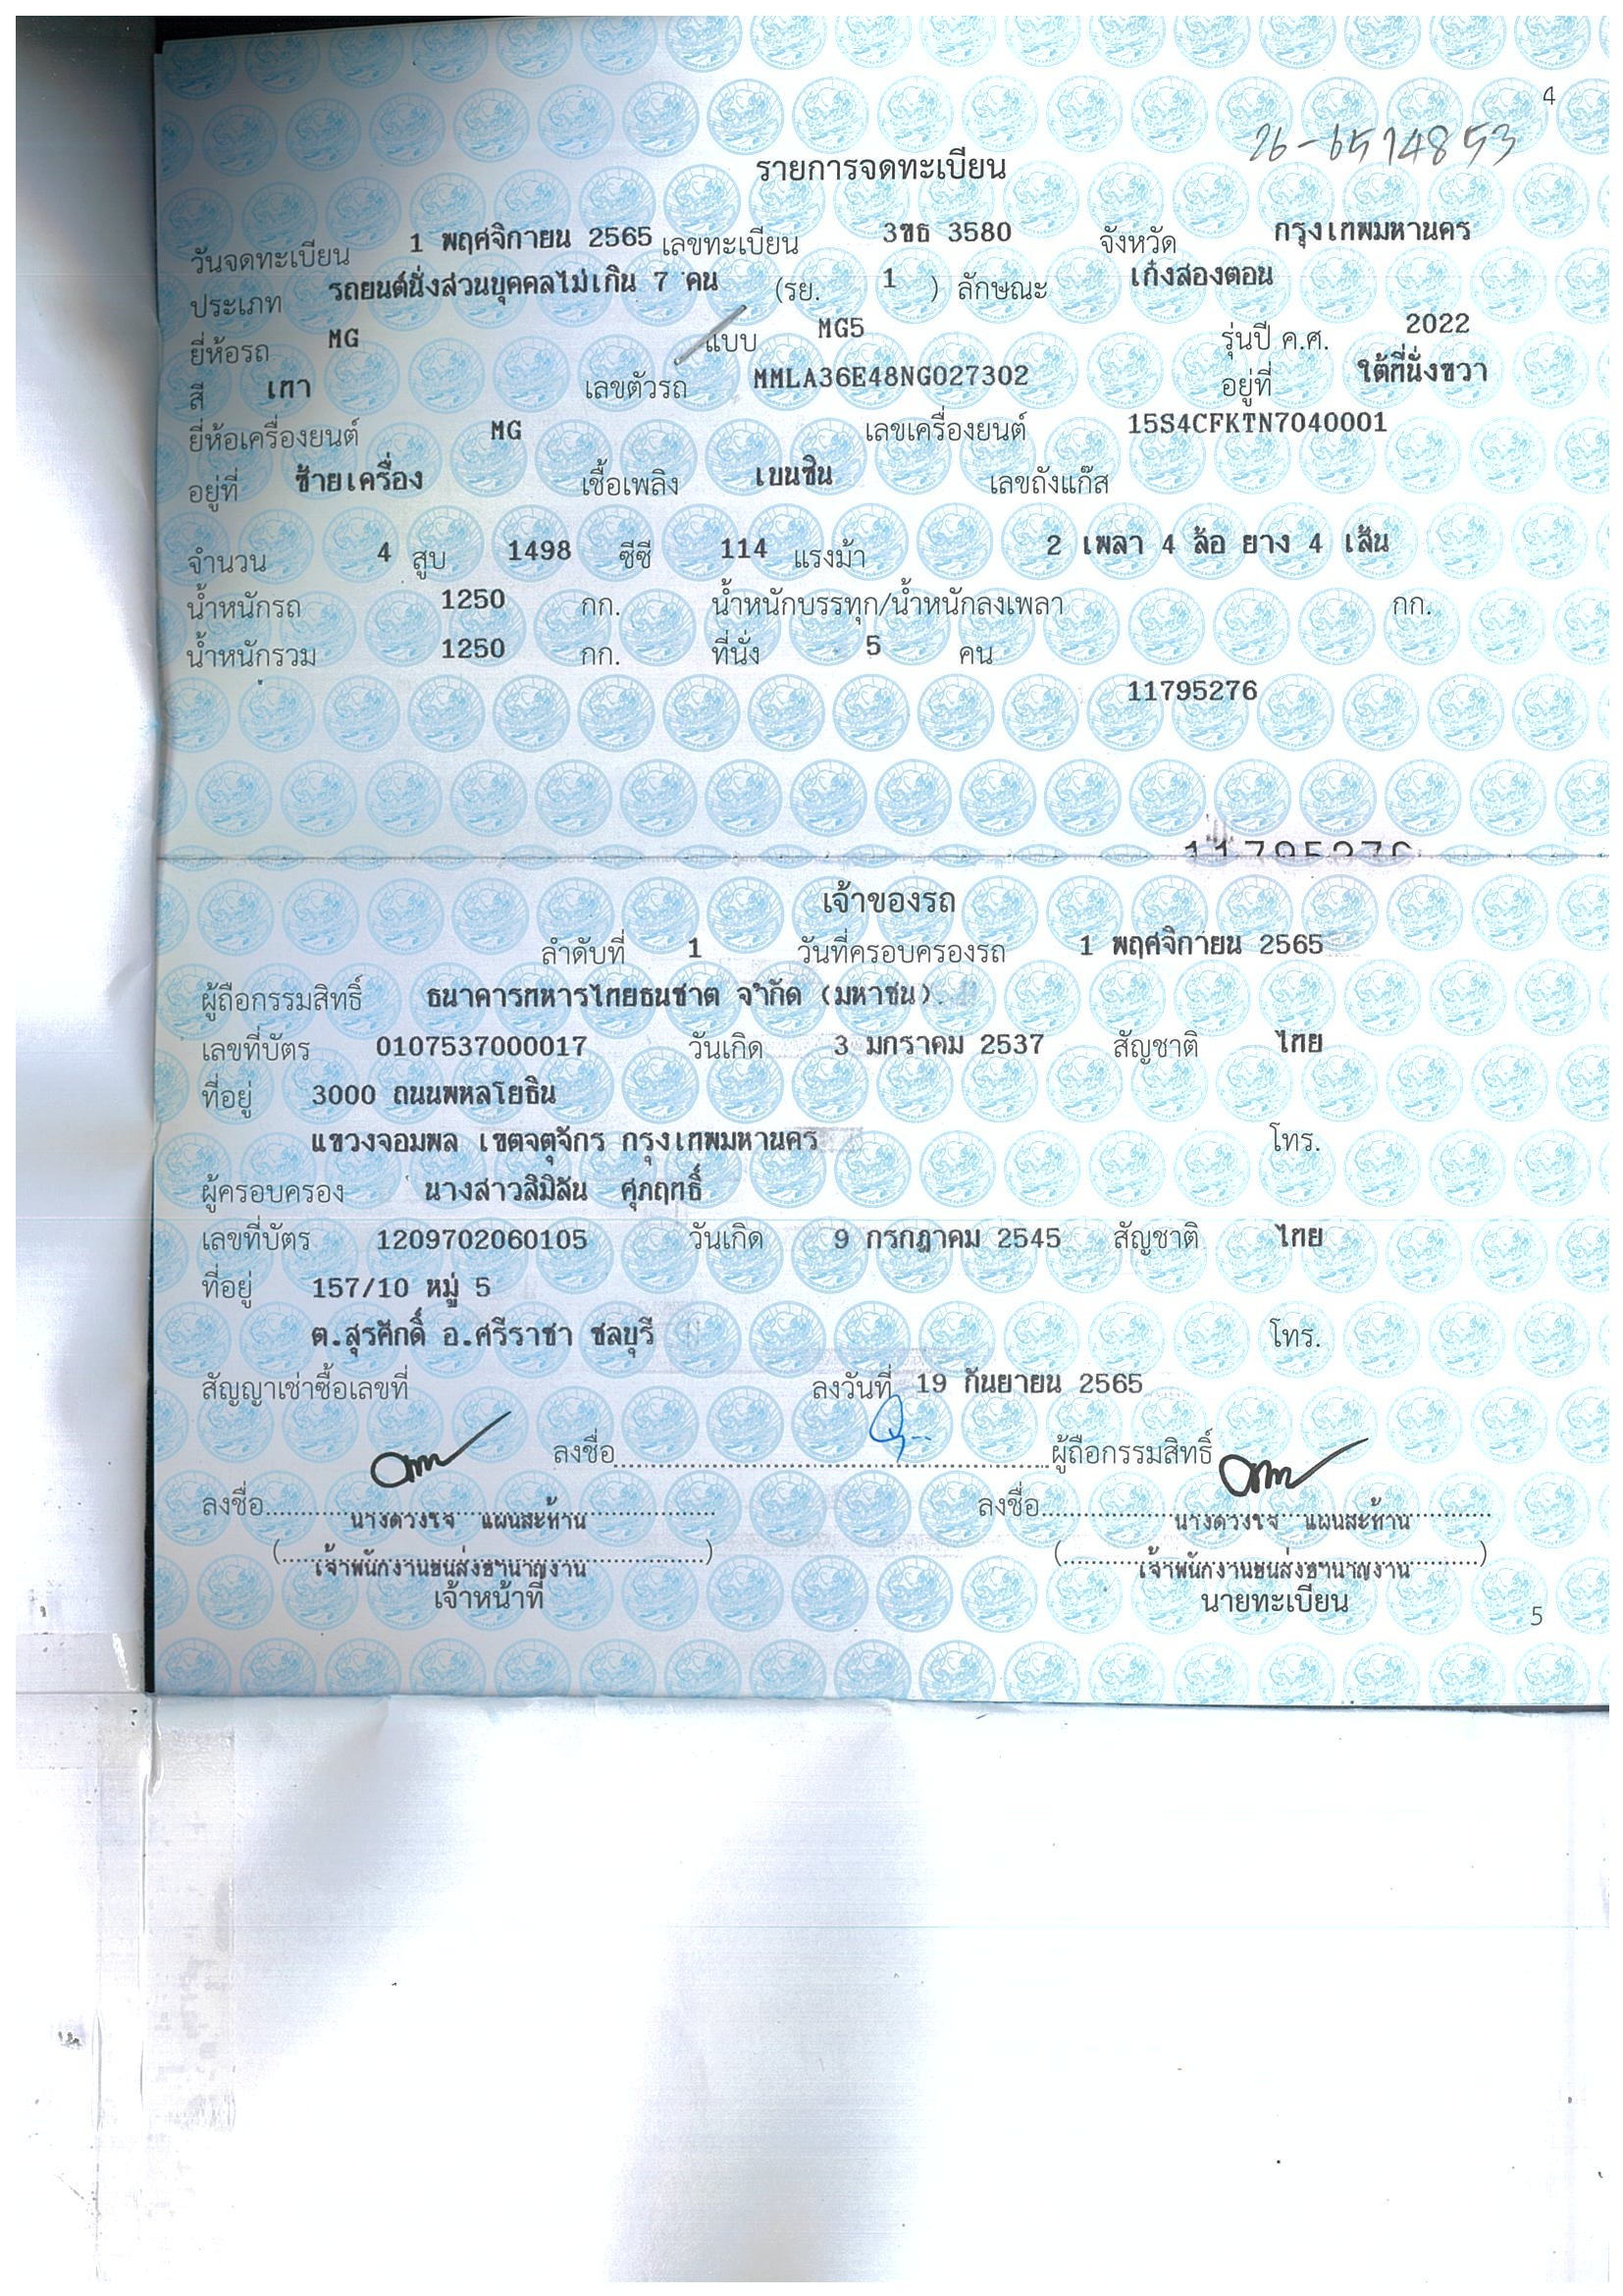 4
26-6514853
รายการจดทะเบียน
วันจดทะเบียน 1 พฤศจิกายน 2565 เลขทะเบียน 3ขธ 3580 จังหวัด กรุงเทพมหานคร
ประเภท รถยนต์นั่งส่วนบุคคลไม่เกิน 7 คน (รย. 1 ) ลักษณะ เก๋งสองตอน
ยี่ห้อรถ MG แบบ MG5 รุ่นปี ค.ศ. 2022
สี เทา เลขตัวรถ MMLA36E48NG027302 อยู่ที่ ใต้ที่นั่งขวา
ยี่ห้อเครื่องยนต์ MG เลขเครื่องยนต์ 15S4CFKTN7040001
อยู่ที่ ซ้ายเครื่อง เชื้อเพลิง เบนซิน เลขถังแก๊ส
จำนวน 4 สูบ 1498 ซีซี 114 แรงม้า 2 เพลา 4 ล้อ ยาง 4 เส้น
น้ำหนักรถ 1250 กก. น้ำหนักบรรทุก/น้ำหนักลงเพลา กก.
น้ำหนักรวม 1250 กก. ที่นั่ง 5 คน
11795276
11795276
เจ้าของรถ
ลำดับที่ 1 วันที่ครอบครองรถ 1 พฤศจิกายน 2565
ผู้ถือกรรมสิทธิ์ ธนาคารทหารไทยธนชาต จำกัด (มหาชน)
เลขที่บัตร 0107537000017 วันเกิด 3 มกราคม 2537 สัญชาติ ไทย
ที่อยู่ 3000 ถนนพหลโยธิน
แขวงจอมพล เขตจตุจักร กรุงเทพมหานคร โทร.
ผู้ครอบครอง นางสาวสิมิลัน ศุภฤทธิ์
เลขที่บัตร 1209702060105 วันเกิด 9 กรกฎาคม 2545 สัญชาติ ไทย
ที่อยู่ 157/10 หมู่ 5
ต.สุรศักดิ์ อ.ศรีราชา ชลบุรี โทร.
สัญญาเช่าซื้อเลขที่ ลงวันที่ 19 กันยายน 2565
ลงชื่อ ผู้ถือกรรมสิทธิ์
ลงชื่อ นางดวงใจ แผนสะท้าน ลงชื่อ นางดวงใจ แผนสะท้าน
(เจ้าพนักงานขนส่งชำนาญงาน) (เจ้าพนักงานขนส่งชำนาญงาน)
เจ้าหน้าที่ นายทะเบียน
5